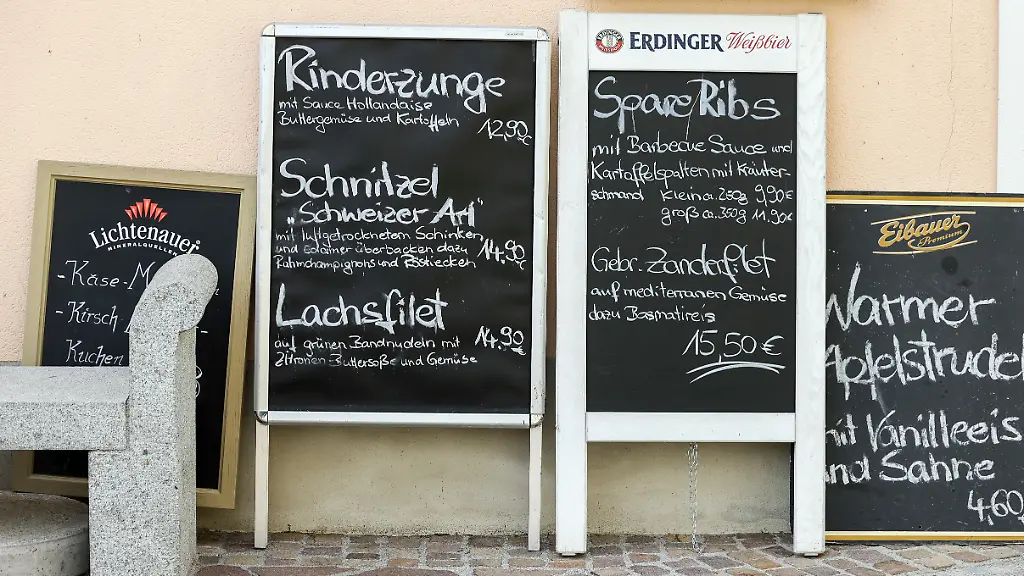 Lichtenauer
MINERALQUELLEN
-Käse-
-Kirsch
Kuchen
Rinderzunge
mit Sauce Hollandaise
Buttergemüse und Kartoffeln
12,90€
Schnitzel
"Schweizer Art"
mit luftgetrocknetem Schinken
und Edamer überbacken dazu
14,90€
Rahmchampignons und Röstiecken
Lachsfilet
auf grünen Bandnudeln mit
14,90€
Zitronen-Buttersoße und Gemüse
ERDINGER Weißbier
Spare Ribs
mit Barbecue Sauce und
Kartoffelspalten mit Kräuter-
schmand Klein ca. 250g 9,90€
groß ca. 350g 11,90€
Gebr. Zanderfilet
auf mediterranen Gemüse
dazu Basmatireis
15,50€
Eibauer
Premium
Warmer
Apfelstrudel
mit Vanilleeis
und Sahne
4,60